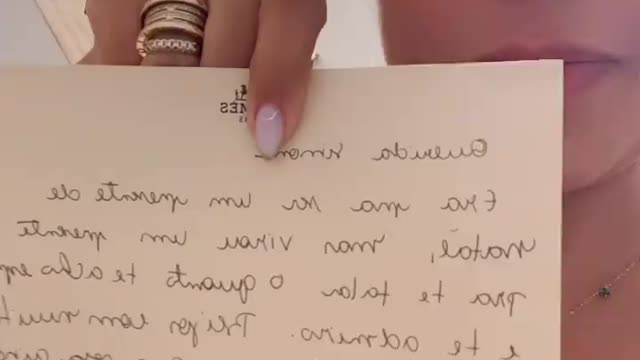 Querida Simone
Era pra ser um presente de
natal, mas virou um presente
pra te falar o quanto te acho esp
e te admiro. Beijos com muit